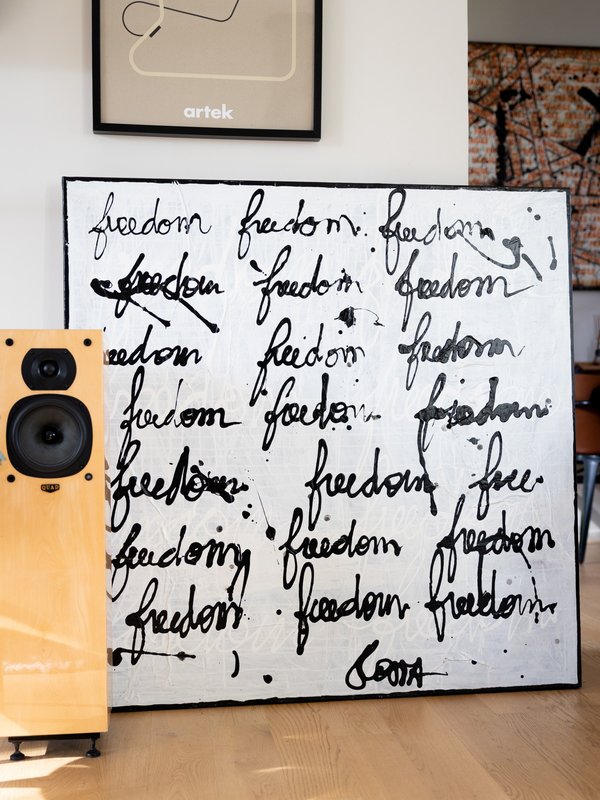 artek
freedom freedom freedom
freedom freedom freedom
freedom freedom freedom
freedom freedom freedom
freedom freedom free
freedom freedom freedom
freedom freedom freedom
QUAD